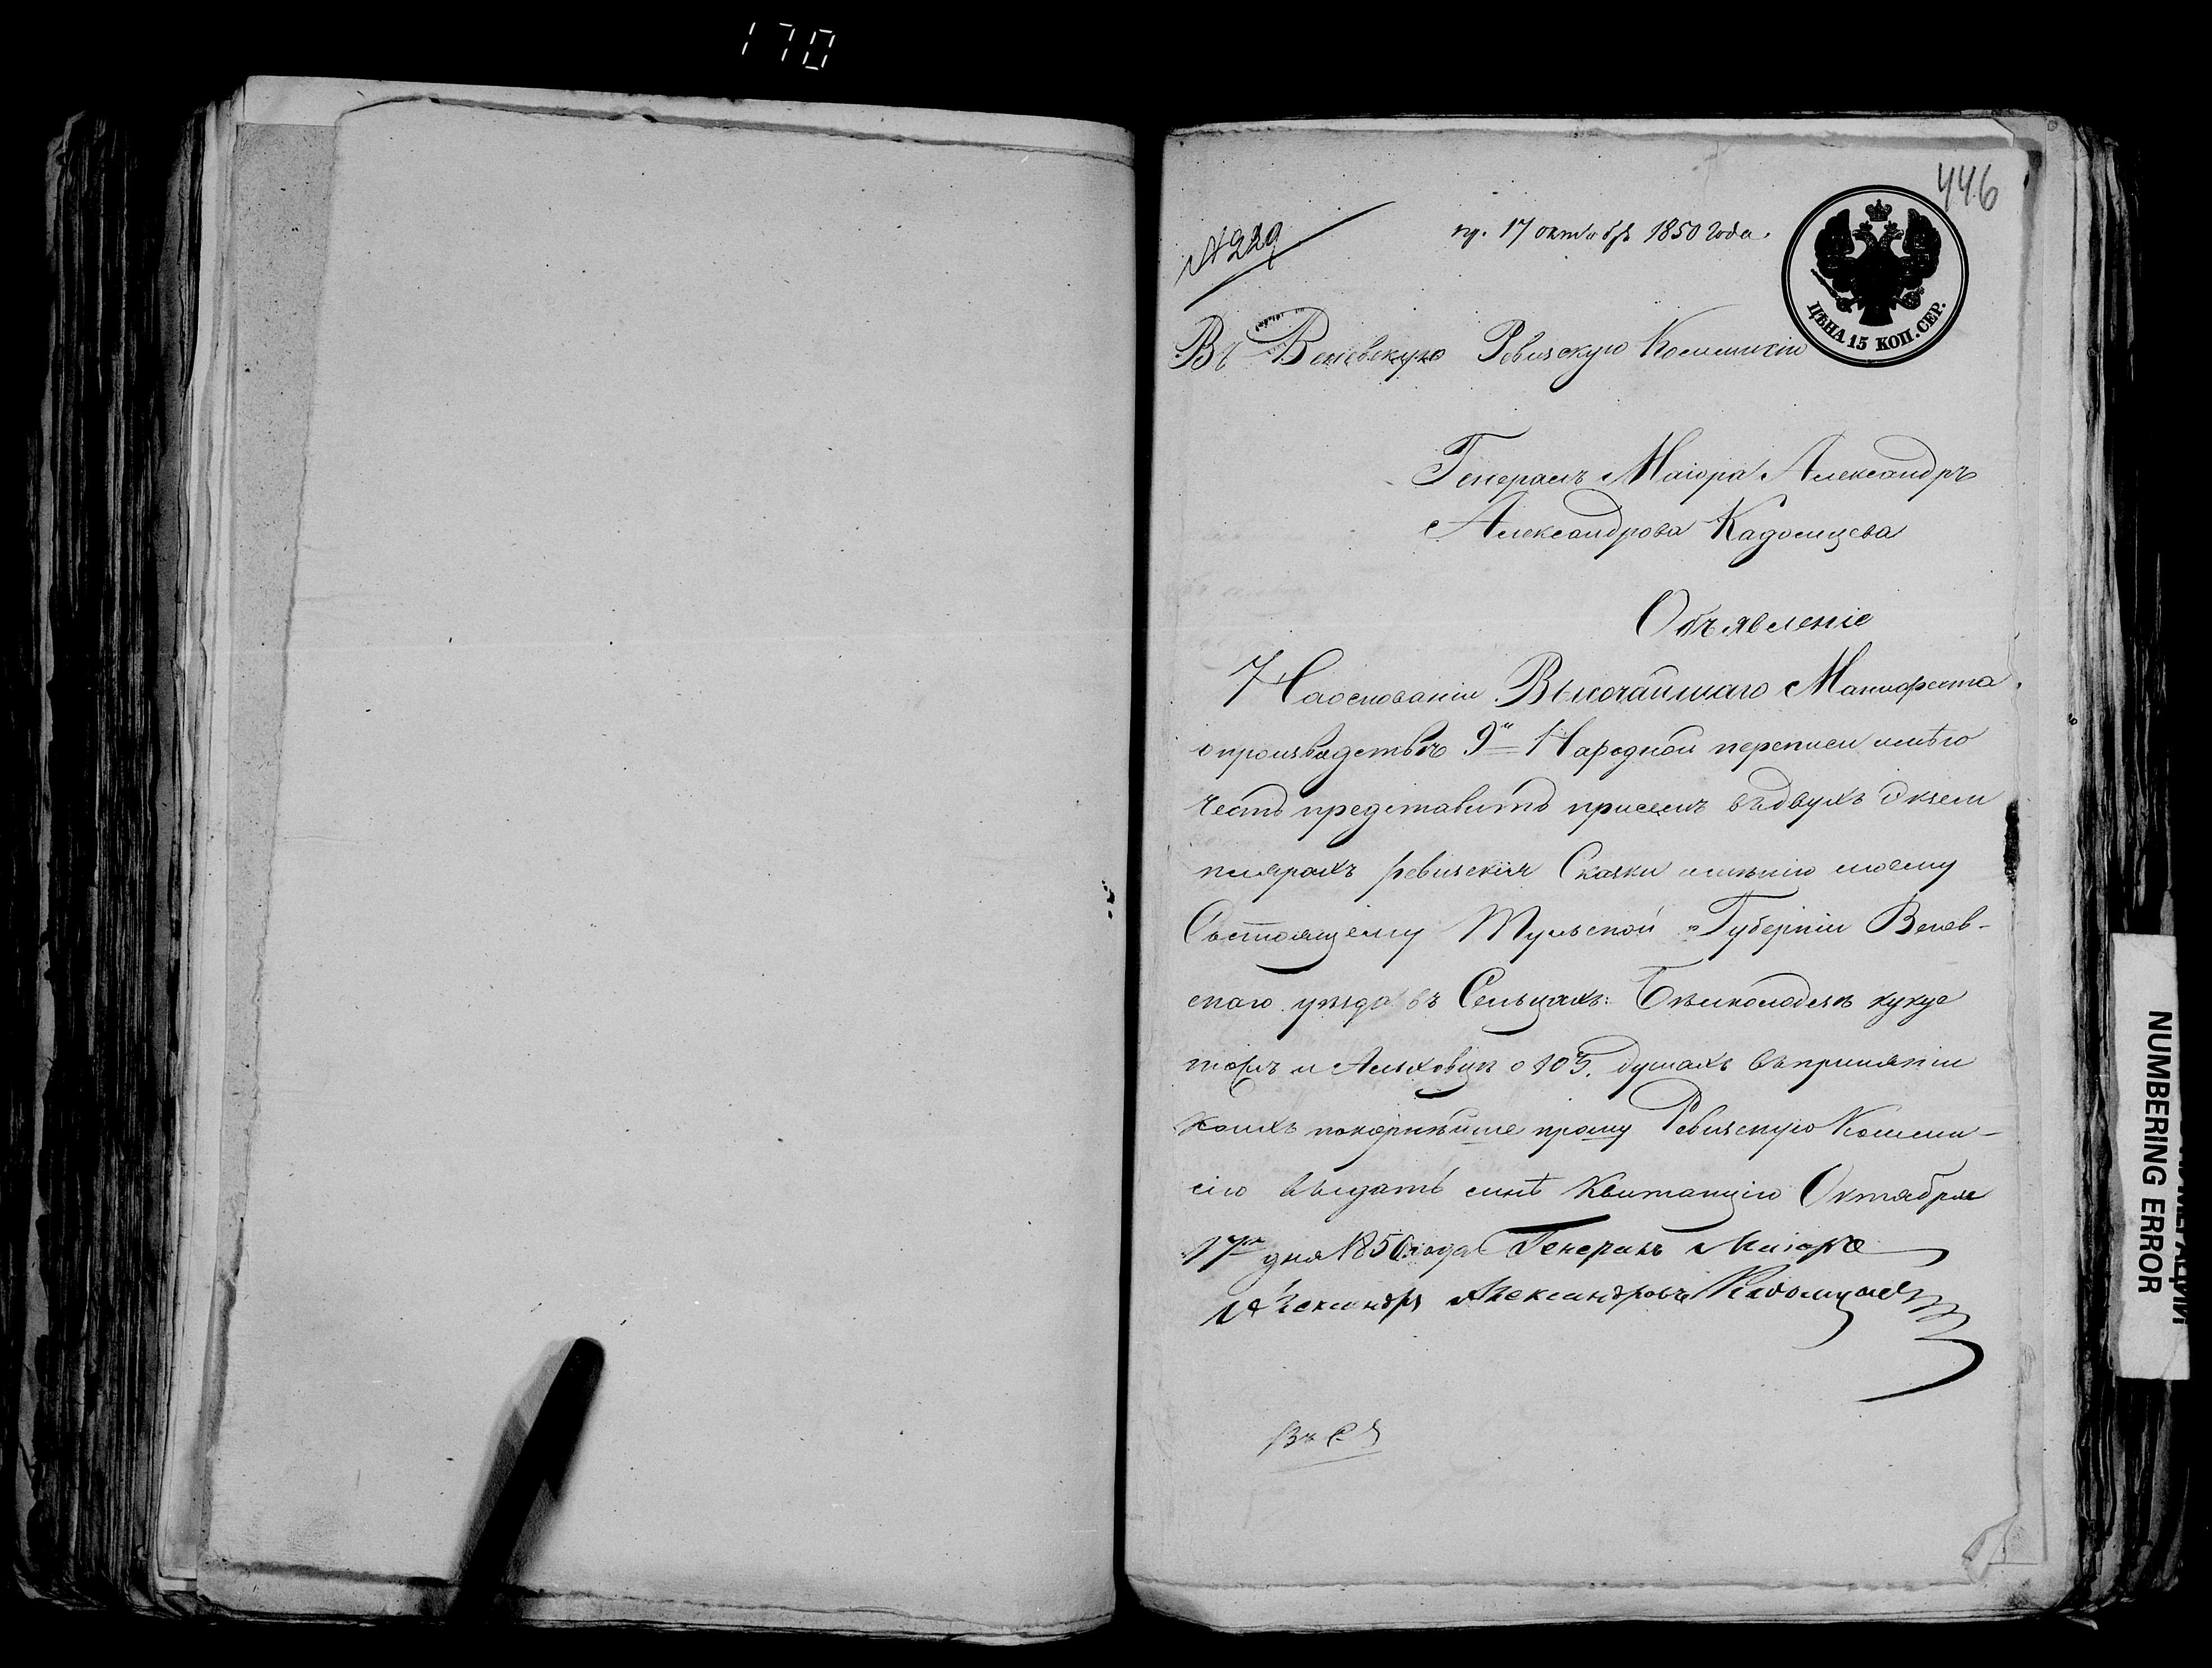 170
446
№ 229
пр. 17 октября 1850 года.
ЦѢНА 15 КОП. СЕР.
Въ Веневскую Ревизскую Коммисію
Генералъ Маіора Александръ
Александрова Кадомцева
Объявленіе
На основаніи Высочайшаго Манифеста
о производствѣ 9й Народной переписи имѣю
честь представить присемъ въ двухъ Экзем
плярахъ ревизскія Сказки имѣнію моему
Состоящему Тульской Губерніи Венев-
скаго уѣзда въ Сельцахъ: Бѣлколодезь кукуе
тожъ и Альховцѣ о 105. душахъ въ принятіи
коихъ покорнѣйше прошу Ревизскую Комми-
сію выдать мнѣ Квитанцію Октября
17го дня 1850 года Генералъ Маіоръ
Александръ Александровъ Кадомцевъ
NUMBERING ERROR